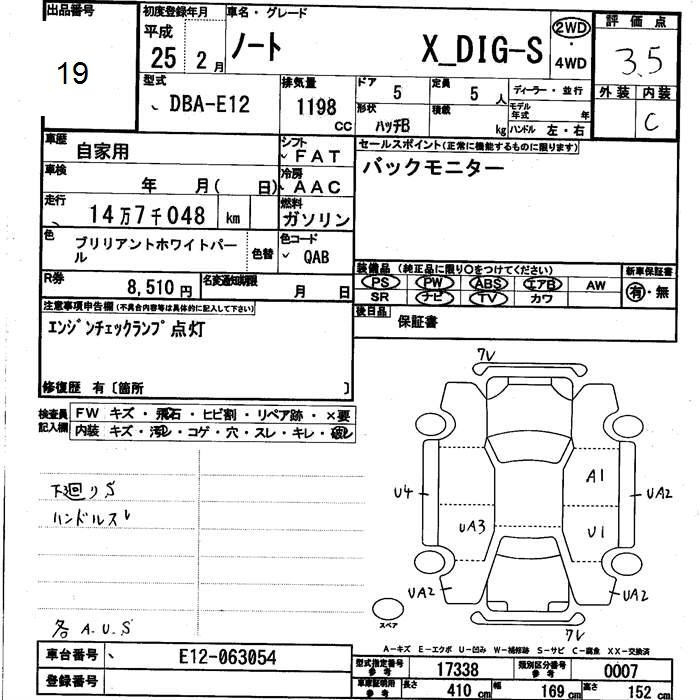 出品番号
19
初度登録年月
平成
25 2月
車名・グレード
ノート X_DIG-S
2WD
・
4WD
評価点
3.5
外装 内装
C
型式
DBA-E12
排気量
1198
CC
ドア
5
定員
5 人
ディーラー・並行
形状
ハッチB
積載
kg
モデル
年式 年
ハンドル 左・右
車歴
自家用
シフト
FAT
車検
年 月( 日)
冷房
AAC
走行
14万7千048 km
燃料
ガソリン
色
ブリリアントホワイトパー
ル
色替
色コード
QAB
R券
8,510円
名変通知期限
月 日
セールスポイント(正常に機能するものに限ります)
バックモニター
装備品 (純正品に限り○をつけてください)
PS PW ABS エアB AW
SR ナビ TV カワ
新車保証書
有・無
後日品
保証書
注意事項申告欄(不具合内容等は具体的に記入して下さい)
エンジンチェックランプ点灯
修復歴 有〔箇所 〕
検査員
記入欄
FW キズ・飛石・ヒビ割・リペア跡・×要
内装 キズ・汚レ・コゲ・穴・スレ・キレ・破レ
下廻りS
ハンドルスレ
各 A.U.S
7V
A1
U4
UA2
UA3
U1
UA2
UA2
スペア
7V
A-キズ E-エクボ U-凹み W-補修跡 S-サビ C-腐食 XX-交換済
車台番号
E12-063054
登録番号
型式指定番号
参考
17338
類別区分番号
参考
0007
車庫証明用
参考
長さ 410 cm 幅 169 cm 高さ 152 cm